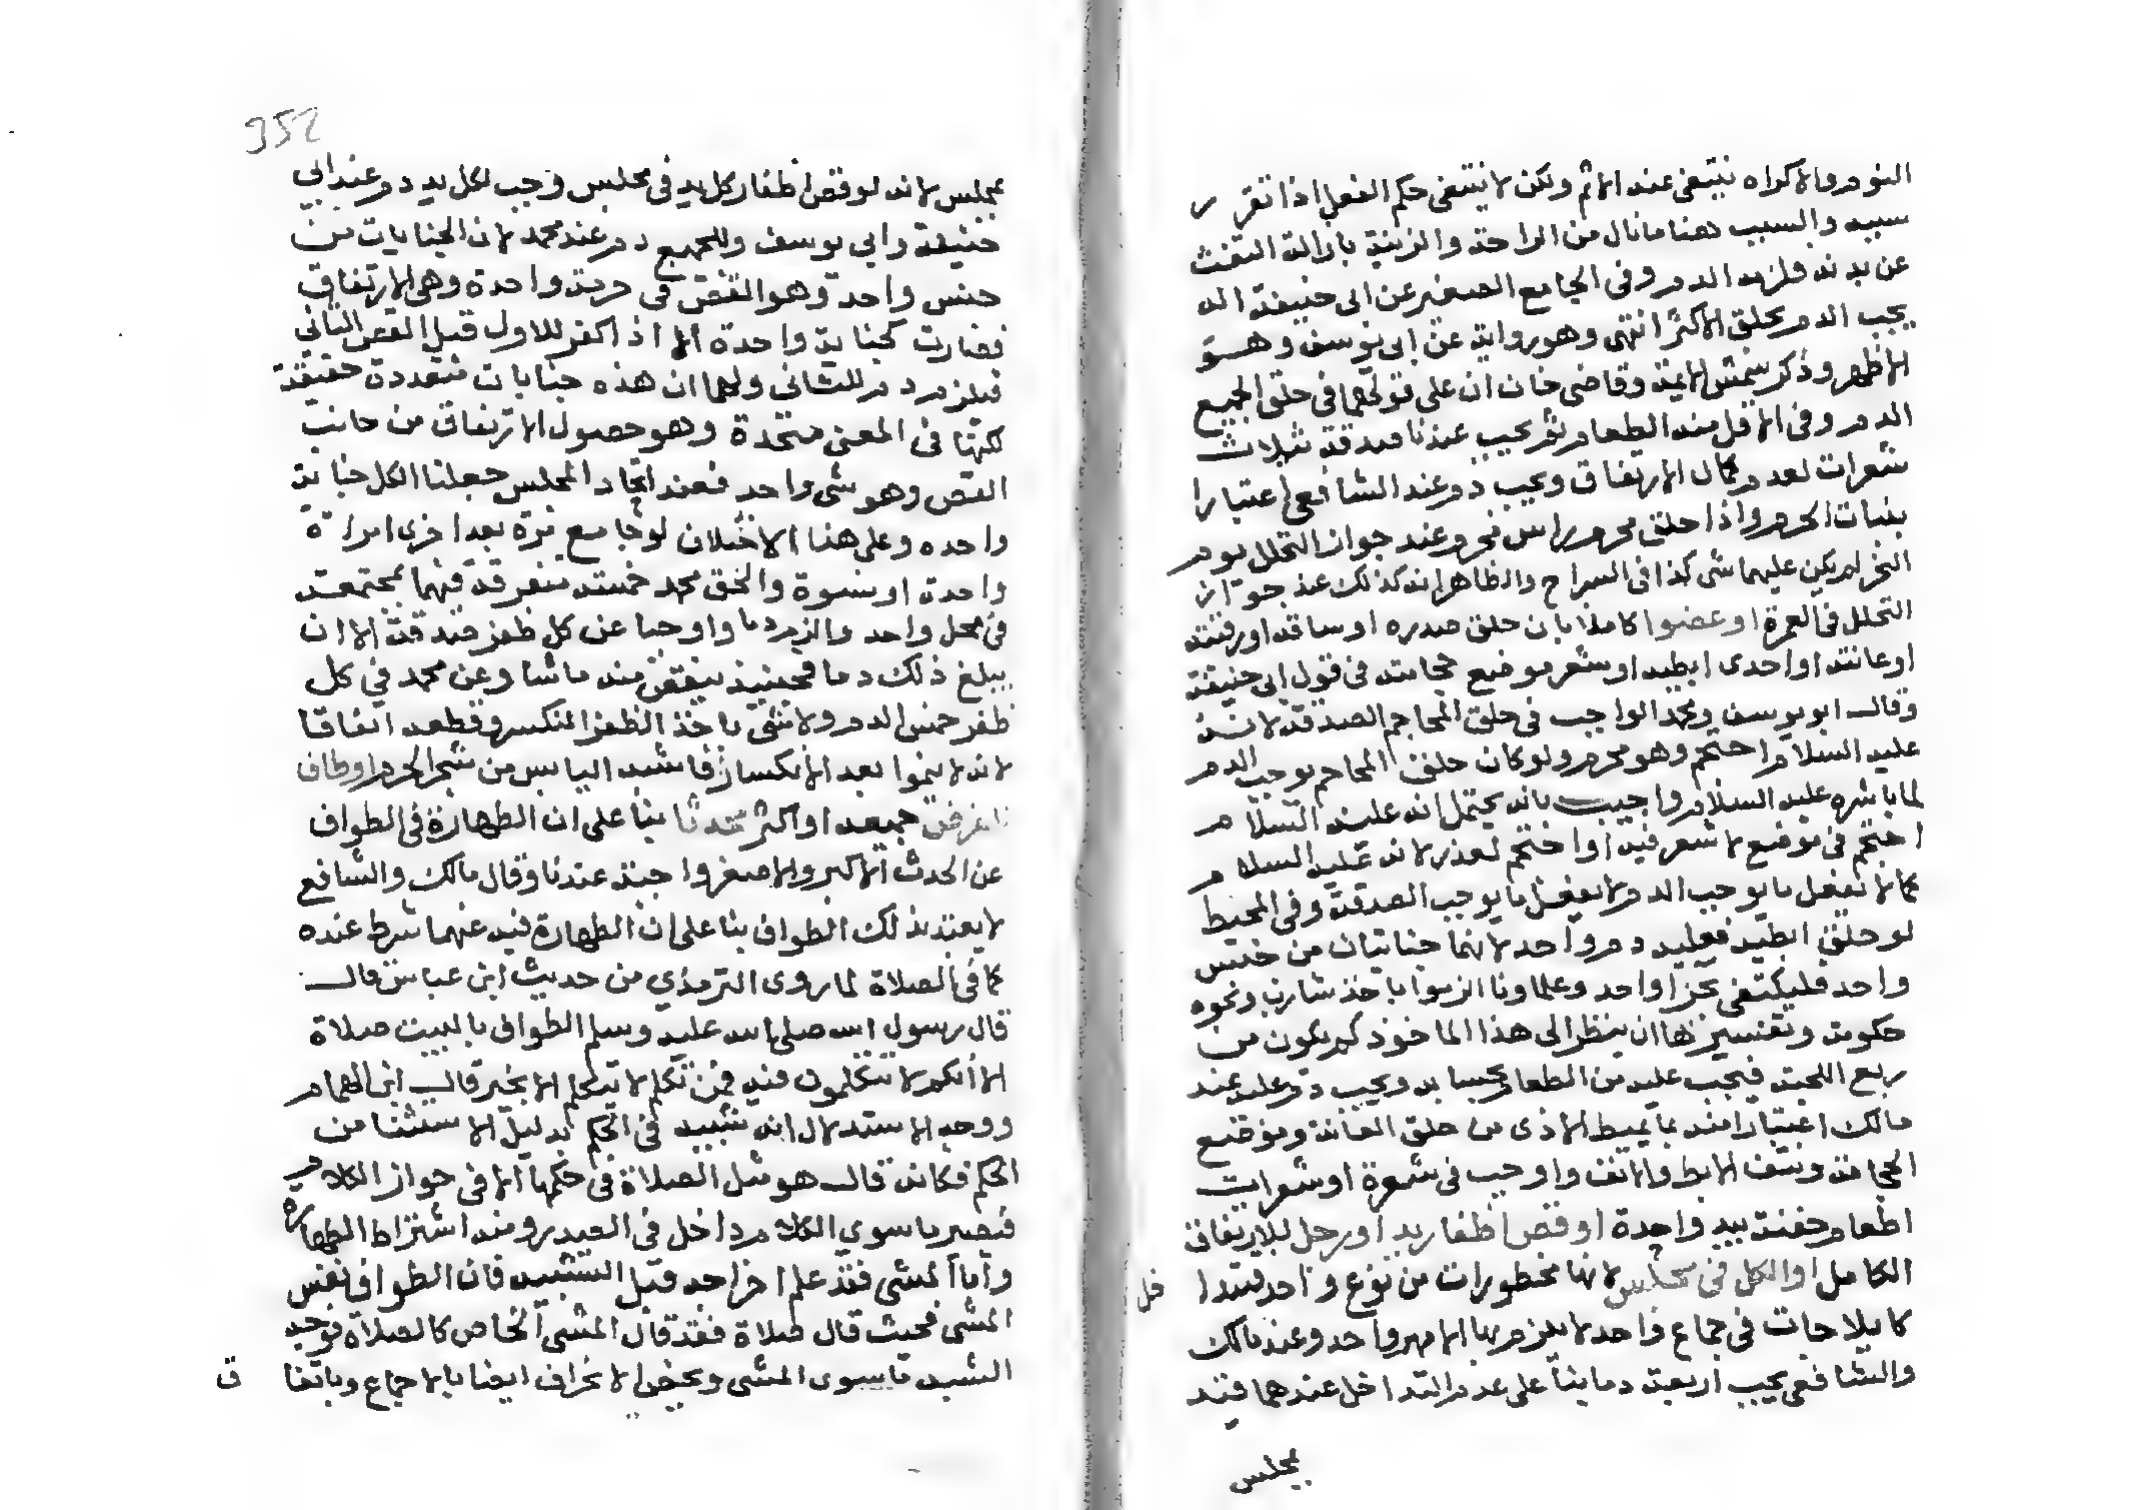 النوم والاكراه ينتفى عنه الاثم ولكن لا ينتفى حكم الفعل اذا تقرر
سببه والسبب هنا ما نال من الراحة والزينة بازالة التفث
عن بدنه فلزمه الدم وفى الجامع الصغير عن ابى حنيفة انه
يجب الدم بحلق الاكثر انتهى وهو رواية عن ابى يوسف وهو
الاظهر وذكر شمس الايمة وقاضى خان ان على قولهما فى حلق الجميع
الدم وفى الاقل منه الطعام ثم يجب عندنا صدقة بثلاث
شعرات لعدم كمال الارتفاق ويجب دم عند الشافعى اعتبارا
بنبات الحرم واذا حلق محرم راس محرم عند جواز التحلل يوم
النحر لم يكن عليهما شى كذا فى السراج والظاهر انه كذلك عند جواز
التحلل فى العمرة او عضوا كاملا بان حلق صدره او ساقه او رقبته
او عانته او احدى ابطيه او شعر موضع محاجمه فى قول ابى حنيفة
وقال ابو يوسف ومحمد الواجب فى حلق المحاجم الصدقة لانه
عليه السلام احتجم وهو محرم ولو كان حلق المحاجم يوجب الدم
لما باشره عليه السلام واجيب بانه يحتمل انه عليه السلام
احتجم فى موضع لا شعر فيه او احتجم لعذر لانه عليه السلام
كما لا يفعل ما يوجب الدم لا يفعل ما يوجب الصدقة وفى المحيط
لو حلق ابطيه فعليه دم واحد لانهما جنايتان من جنس
واحد فليكتفى بجزا واحد وعلماونا الزموا باخذ شارب ونحوه
حكومة وتفسيرها ان ينظر الى هذا الماخوذ كم يكون من
ربع اللحية فيجب عليه من الطعام بحسابه ويجب دم عليه عند
مالك اعتبارا منه بما يميط الاذى من حلق العانة وموضع
الحجامة ونتف الابط والانف واوجب فى شعرة او شعرات
اطعام حفنة بيد واحدة او قص اظفار يد او رجل للارتفاق
الكامل او الكل فى مجلس لانها محظورات من نوع واحد فتدا خل
كايلاجات فى جماع واحد لا يلزم بها الا مهر واحد وعند مالك
والشافعى يجب اربعة دما بنا على عدم التداخل عندهما قيد
بمجلس
352
بمجلس لانه لو قص اظفار كل يد فى مجلس وجب لكل يد دم عند ابى
حنيفة وابى يوسف وللجميع دم عند محمد لان الجنايات من
جنس واحد وهو القص فى حرمة واحدة وهى الارتفاق
فصارت كجناية واحدة الا اذا كفر للاول قبل القص الثانى
فيلزم دم للثانى ولهما ان هذه جنايات متعددة حقيقة
لكنها فى المعنى متحدة وهو حصول الارتفاق من جانب
القص وهو شى واحد فعند اتحاد المجلس جعلنا الكل جناية
واحده وعلى هذا الاختلاف لو جامع مرة بعد اخرى امراة
واحدة او نسوة والحق محمد خمسة متفرقة فيها بمجتمعة
فى محل واحد والزم دما واوجبا عن كل ظفر صدقة الا ان
يبلغ ذلك دما فحينيذ ينقص منه ما شا وعن محمد فى كل
ظفر خمس الدم ولا شى باخذ الظفر المنكسر وقطعه اتفاقا
لانه لا ينموا بعد الانكسار فاشبه اليابس من شجر الحرم او طاف
للفرض جميعه او اكثر محدثا بنا على ان الطهارة فى الطواف
عن الحدث الاكبر والاصغر واجبة عندنا وقال مالك والشافع
لا يعتد بذلك الطواف بنا على ان الطهارة فيه عنهما شرط عنده
كما فى الصلاة لما روى الترمذي من حديث ابن عباس قال
قال رسول الله صلى الله عليه وسلم الطواف بالبيت صلاة
الا انكم لا تتكلمون فيه فمن تكلم لا يتكلم الا بخير قال ابن الهمام
ووجه الاستدلال انه تشبيه فى الحكم بدليل الاستثنا من
الحكم فكانه قال هو مثل الصلاة فى حكمها الا فى جواز الكلام
فيصير ما سوى الكلام داخل فى الصدر ومنه اشتراط الطهارة
واما المشى فقد علم اخراجه قبل التشبيه فان الطواف نفس
المشى فحيث قال صلاة فقد قال المشى الخاص كالصلاة فوجه
الشبه ما سوى المشى ويخص الانحراف ايضا بالاجماع وباتفا ق